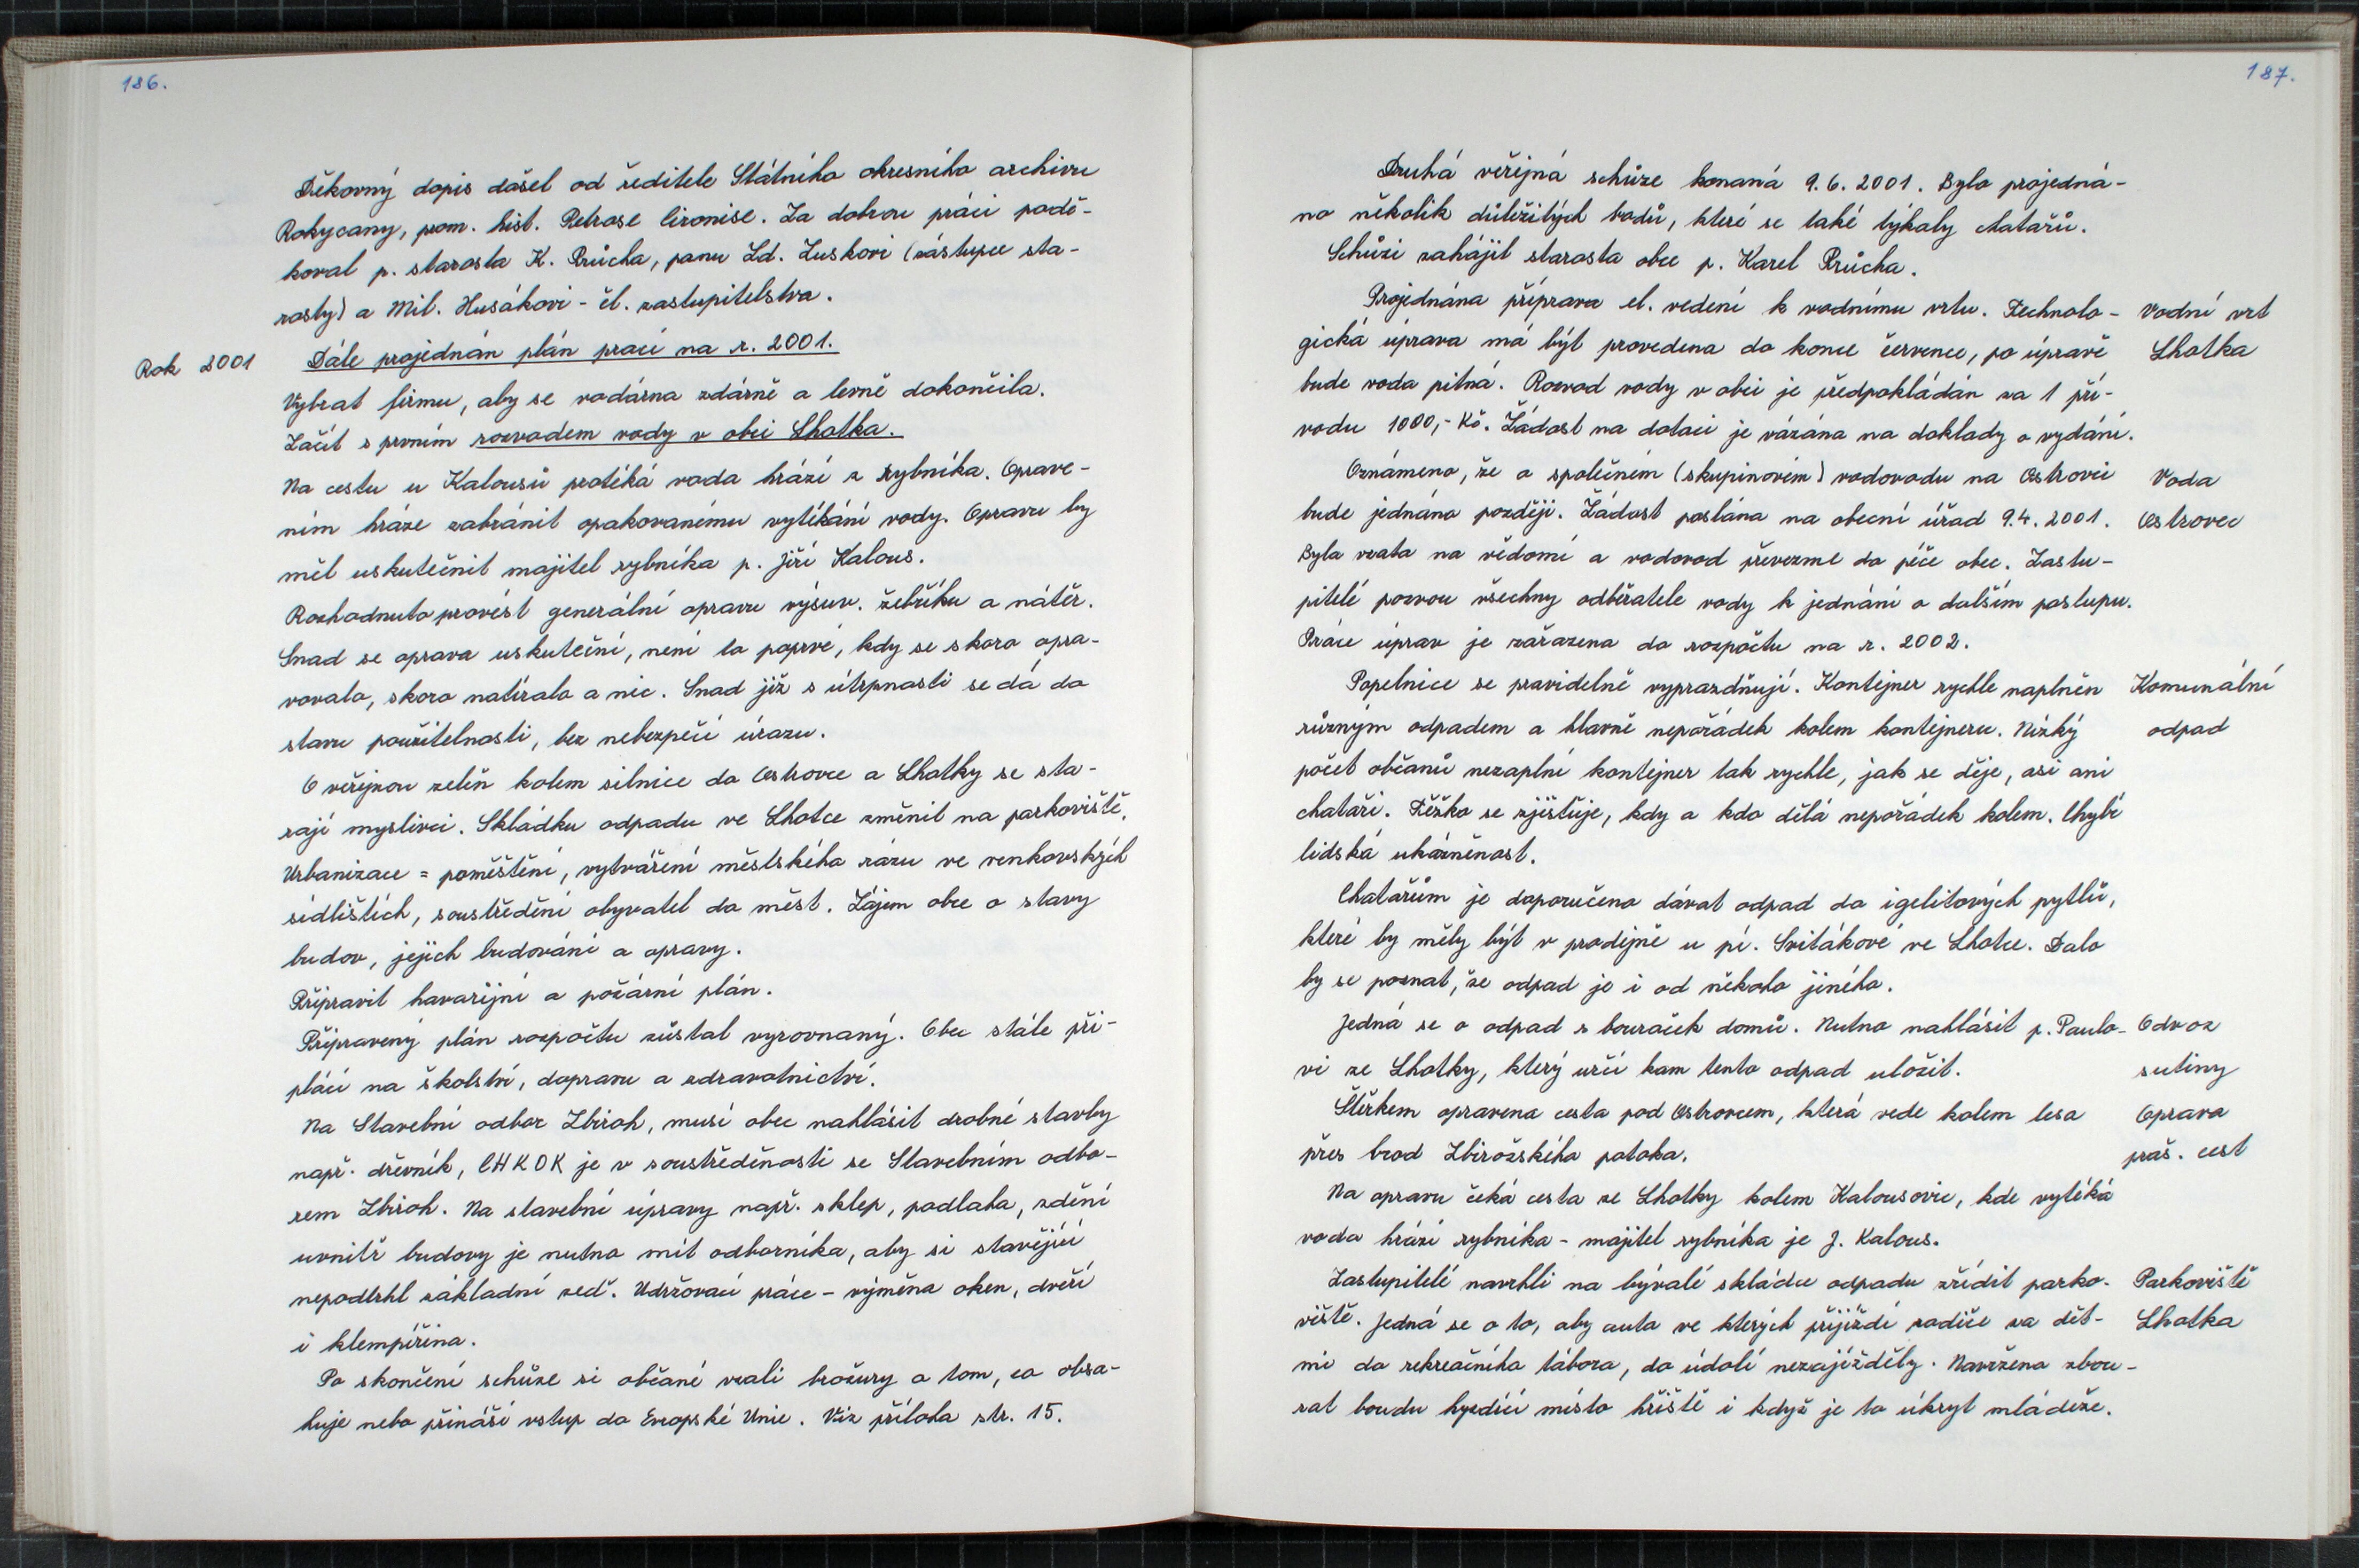 186.
Děkovný dopis došel od ředitele Státního okresního archivu
Rokycany, prom. hist. Petrose Cironise. Za dobrou práci podě-
koval p. starosta K. Průcha, panu Zd. Zuskovi (zástupce sta-
rosty) a Mil. Husákovi - čl. zastupitelstva.
Rok 2001 Dále projednán plán prací na r. 2001.
Vybrat firmu, aby se vodárna zdárně a levně dokončila.
Začít s prvním rozvodem vody v obci Lhotka.
Na cestu u Kalousů protéká voda hrází z rybníka. Oprave-
ním hráze zabránit opakovanému vytékání vody. Opravu by
měl uskutečnit majitel rybníka p. Jiří Kalous.
Rozhodnuto provést generální opravu výsuv. žebříku a nátěr.
Snad se oprava uskuteční, není to poprvé, kdy se skoro opra-
vovalo, skoro natíralo a nic. Snad již s útrpností se dá do
stavu použitelnosti, bez nebezpečí úrazu.
O veřejnou zeleň kolem silnice do Ostrovce a Lhotky se sta-
rají myslivci. Skládku odpadu ve Lhotce změnit na parkoviště.
Urbanizace = poměštění, vytváření městského rázu ve venkovských
sídlištích, soustředění obyvatel do měst. Zájem obce o stavy
budov, jejich budování a opravy.
Připravit havarijní a požární plán.
Připravený plán rozpočtu zůstal vyrovnaný. Obec stále při-
plácí na školství, dopravu a zdravotnictví.
Na Stavební odbor Zbiroh, musí obec nahlásit drobné stavby
např. dřevník, CHKOK je v soustředěnosti se Stavebním odbo-
rem Zbiroh. Na stavební úpravy např. sklep, podlaha, zdění
uvnitř budovy je nutno mít odborníka, aby si stavějící
nepodtrhl základní zeď. Udržovací práce - výměna oken, dveří
i klempířina.
Po skončení schůze si občané vzali brožury o tom, co obsa-
huje nebo přináší vstup do Evropské Unie. Viz příloha str. 15.
187.
Druhá veřejná schůze konaná 9.6.2001. Bylo projedná-
no několik důležitých bodů, které se také týkaly chatařů.
Schůzi zahájil starosta obce p. Karel Průcha.
Projednána příprava el. vedení k vodnímu vrtu. Technolo- Vodní vrt
gická úprava má být provedena do konce července, po úpravě Lhotka
bude voda pitná. Rozvod vody v obci je předpokládán za 1 pří-
vodu 1000,- Kč. Žádost na dotaci je vázána na doklady o vydání.
Oznámeno, že o společném (skupinovém) vodovodu na Ostrovci Voda
bude jednáno později. Žádost poslána na obecní úřad 9.4.2001. Ostrovec
Byla vzata na vědomí a vodovod převezme do péče obec. Zastu-
pitelé pozvou všechny odběratele vody k jednání o dalším postupu.
Práce úprav je zařazena do rozpočtu na r. 2002.
Popelnice se pravidelně vyprazdňují. Kontejner rychle naplněn Komunální
různým odpadem a hlavně nepořádek kolem kontejneru. Nízký odpad
počet občanů nezaplní kontejner tak rychle, jak se děje, asi ani
chataři. Těžko se zjišťuje, kdy a kdo dělá nepořádek kolem. Chybí
lidská ukázněnost.
Chatařům je doporučeno dávat odpad do igelitových pytlů,
které by měly být v prodejně u pí. Svitákové ve Lhotce. Dalo
by se poznat, že odpad je i od někoho jiného.
Jedná se o odpad z bouraček domů. Nutno nahlásit p. Paulo- Odvoz
vi ze Lhotky, který určí kam tento odpad uložit. sutiny
Štěrkem opravena cesta pod Ostrovcem, která vede kolem lesa Oprava
přes brod Zbirožského potoka. praš. cest
Na opravu čeká cesta ze Lhotky kolem Kalousovic, kde vytéká
voda hrází rybníka - majitel rybníka je J. Kalous.
Zastupitelé navrhli na bývalé skládce odpadu zřídit parko- Parkoviště
viště. Jedná se o to, aby auta ve kterých přijíždí rodiče za dět- Lhotka
mi do rekreačního tábora, do údolí nezajížděly. Navrženo zbou-
rat boudu hyzdící místo hřiště i když je to úkryt mládeže.